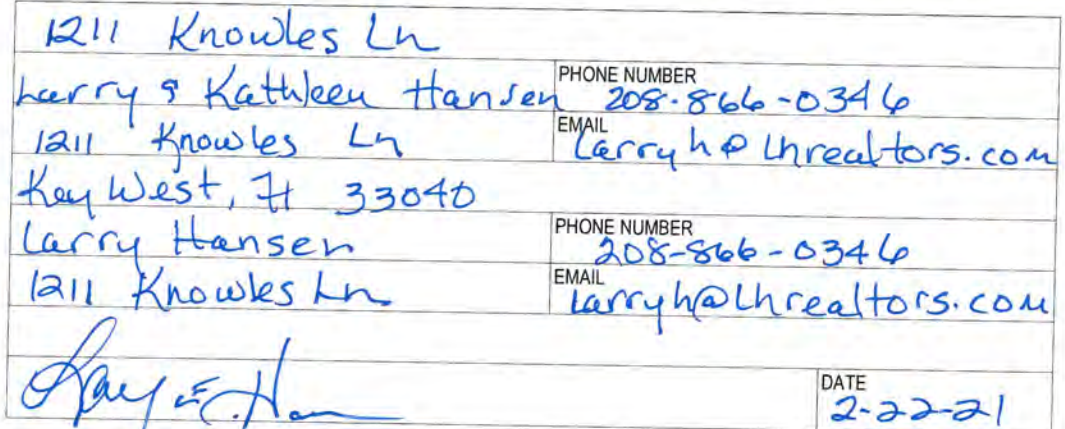 1211 Knowles Ln
Larry & Kathleen Hansen PHONE NUMBER 208-866-0346
1211 Knowles Ln EMAIL Larryh@Lhrealtors.com
Key West, Fl 33040
Larry Hansen PHONE NUMBER 208-866-0346
1211 Knowles Ln EMAIL Larryh@Lhrealtors.com
DATE 2-22-21